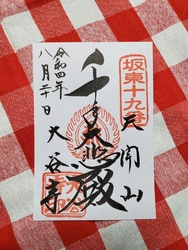 坂東十九番
天開山
千手大悲殿
大谷寺
令和四年
八月二十日